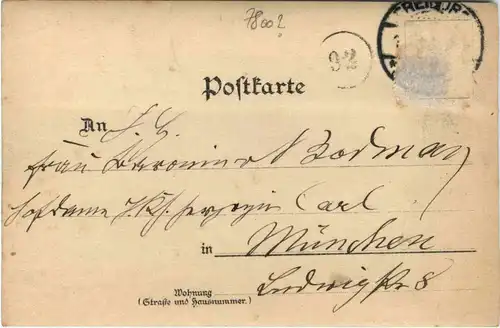 7800?
FREIBURG
92
Postkarte
An I. H.
Frau Baronin v Bodman
Hofdame I. K. H. Herzogin Carl
in München
Wohnung
(Straße und Hausnummer.)
Ludwigstr 8